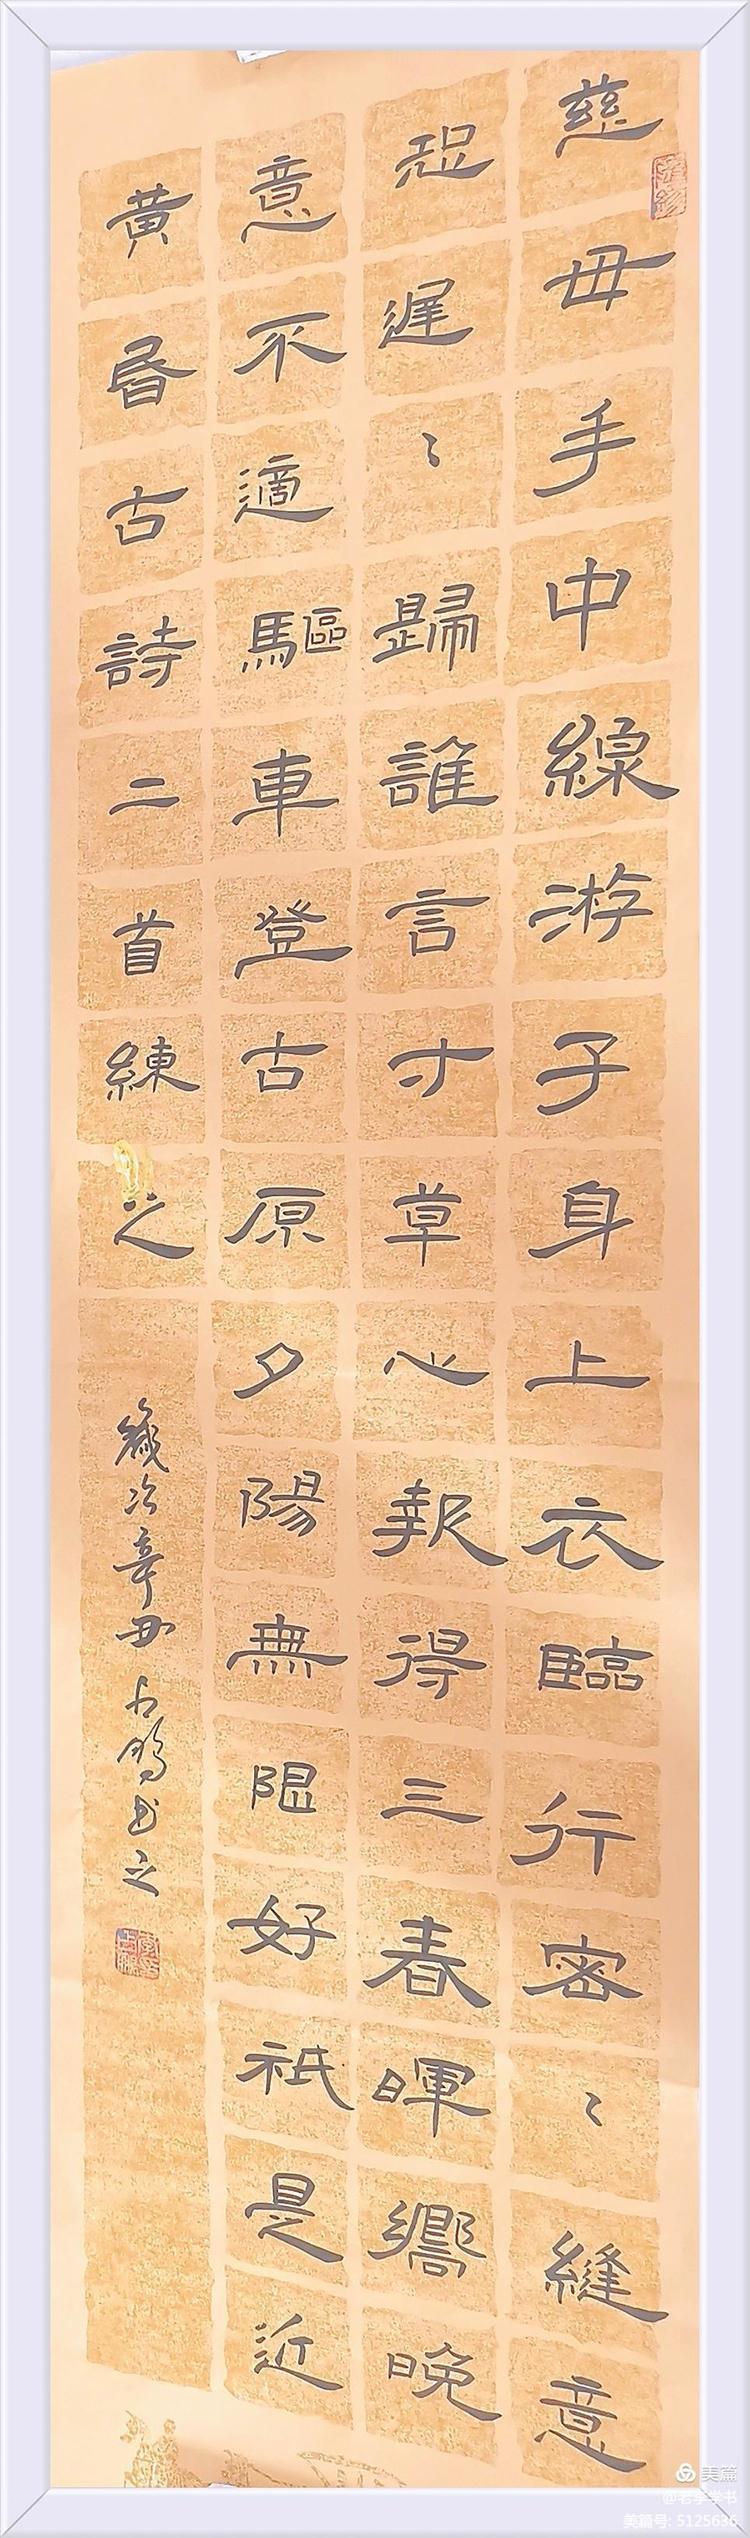 慈母手中線游子身上衣臨行密〻縫意
恐遲〻歸誰言寸草心報得三春暉嚮晚
意不適驅車登古原夕陽無限好祇是近
黃昏古詩二首練之
歲次辛丑书之
美篇
@老李学书
美篇号: 5125636